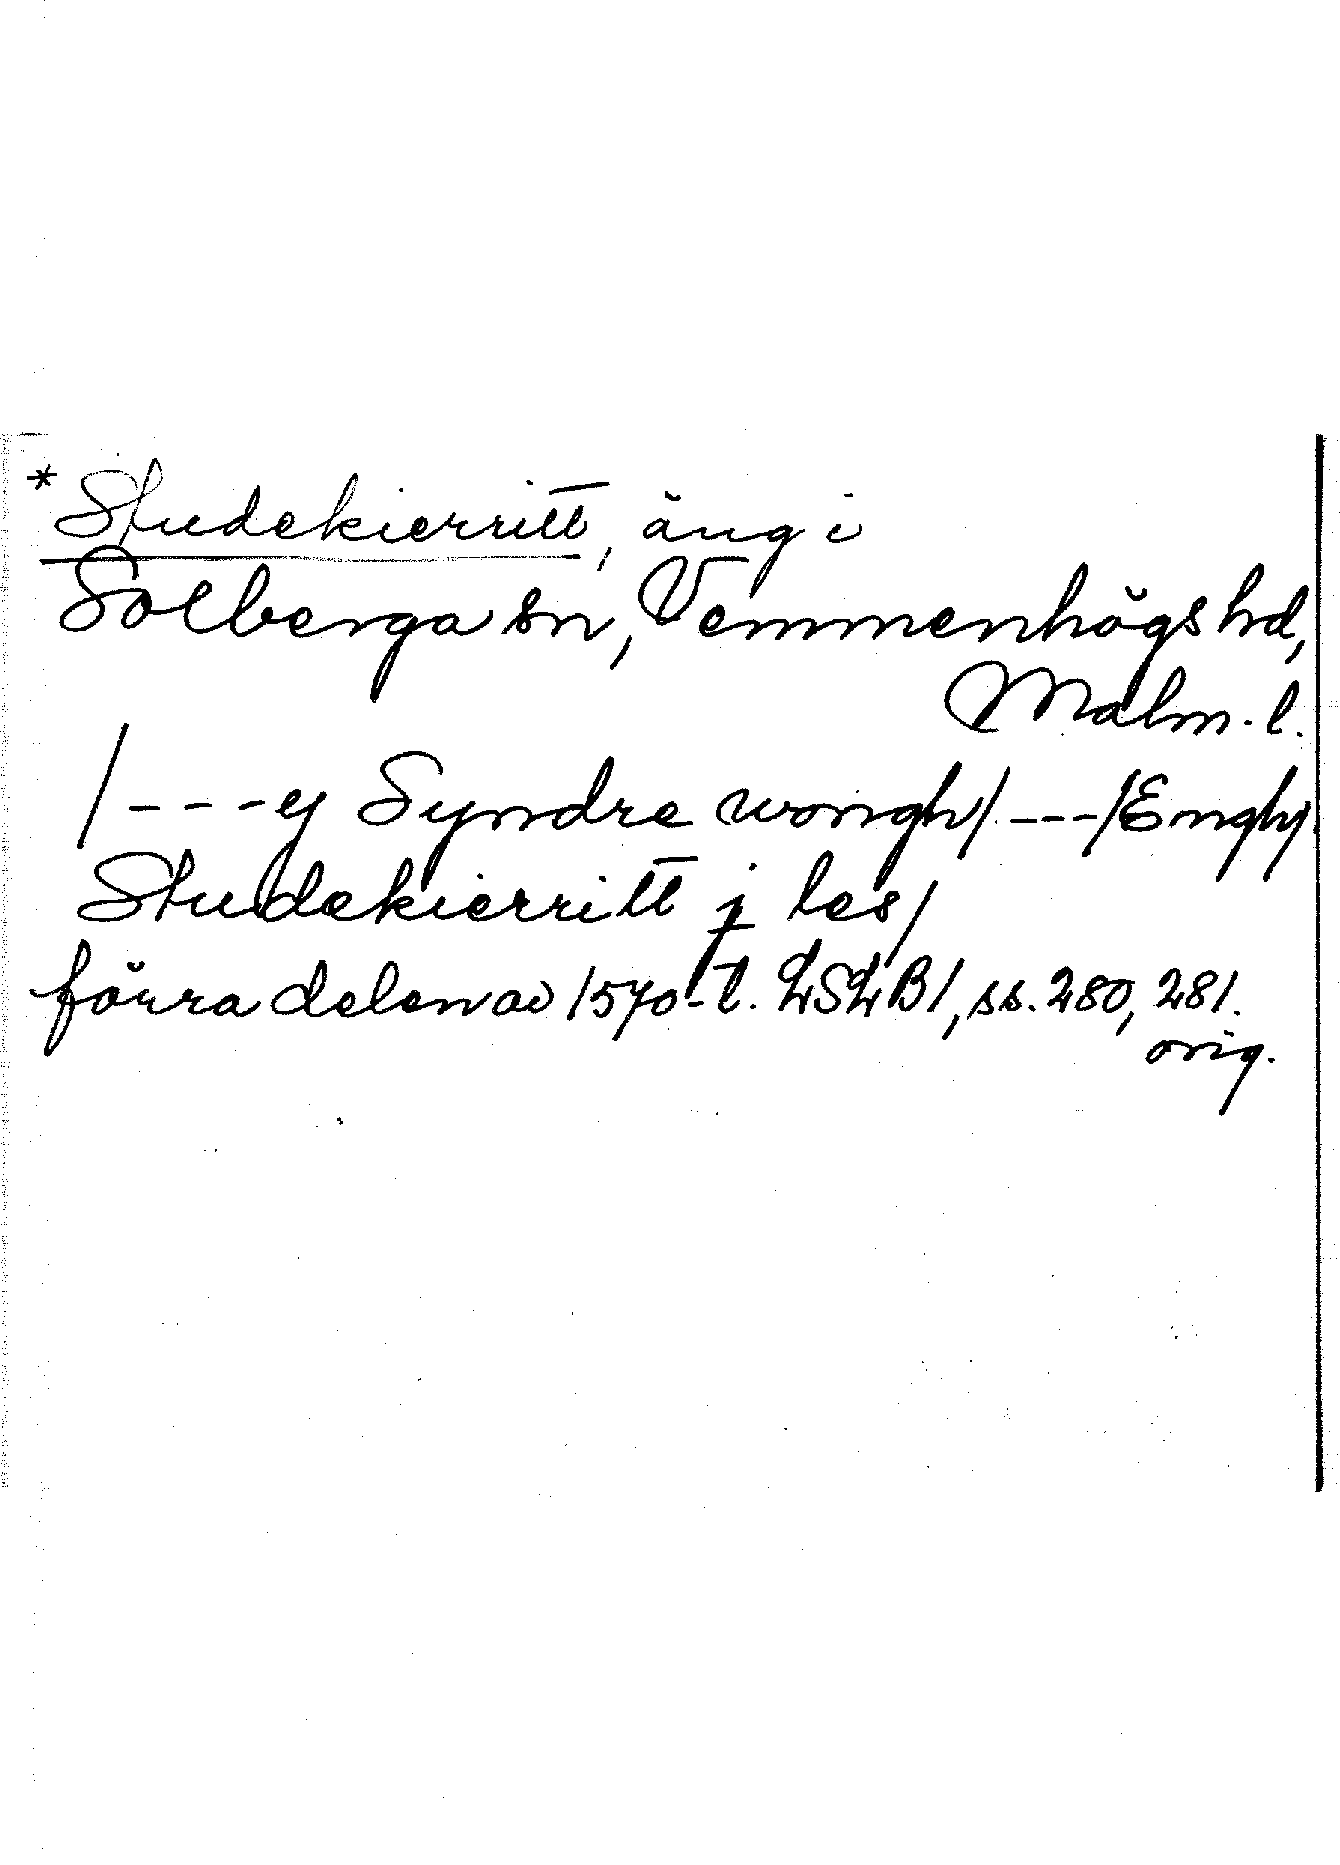 *Studekierritt, äng i
Solberga sn, Vemmenhögs hd,
Malm. l.
/---ej Syndre wongh/ ---/Engh/
Studekierritt j les/
förra delen av 1570-t. LSLB1, ss. 280, 281.
orig.